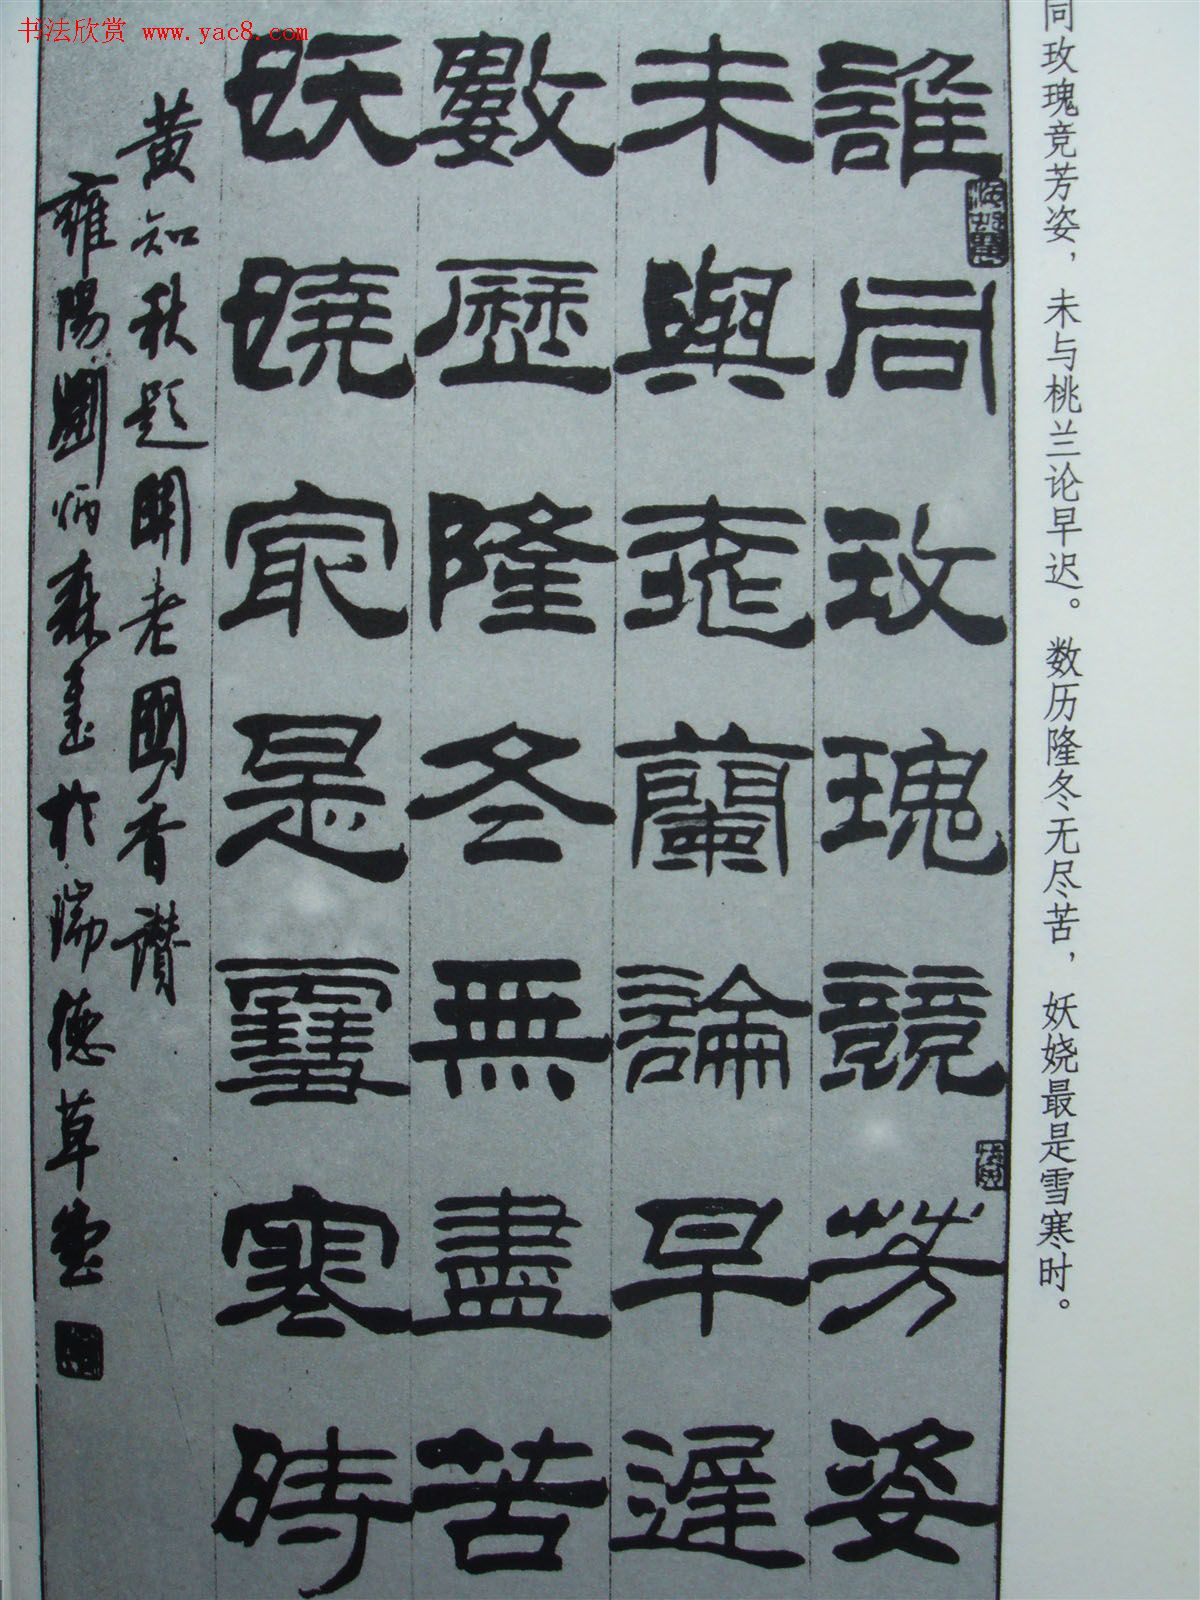 书法欣赏 www.yac8.com
同玫瑰竞芳姿，未与桃兰论早迟。数历隆冬无尽苦，妖娆最是雪寒时。
誰同玫瑰競芳姿
未與桃蘭論早遲
數歷隆冬無盡苦
妖嬈最是雪寒時
黄知秋題關老國香讚
雍陽劉炳森書於瑞德草堂